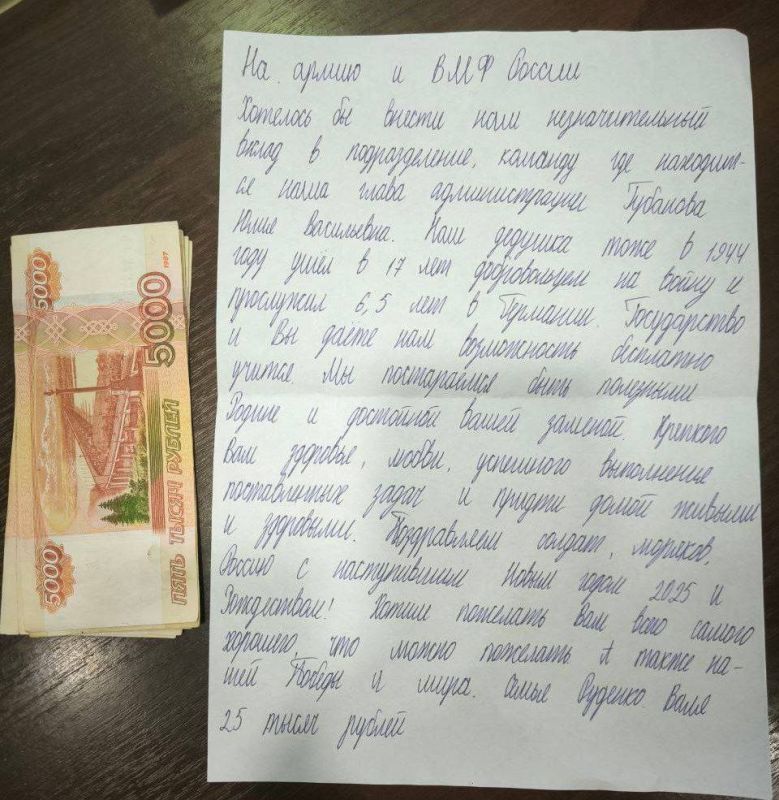 5000
5000
1997
ПЯТЬ ТЫСЯЧ РУБЛЕЙ
5000
На армию и ВМФ России
Хотелось бы внести нам незначительный
вклад в подразделение, команду где находит-
ся наша глава администрации Губанова
Юлия Васильевна. Наш дедушка тоже в 1944
году ушёл в 17 лет добровольцем на войну и
прослужил 6,5 лет в Германии. Государство
и Вы даёте нам возможность бесплатно
учится. Мы постараемся быть полезными
Родине и достойной Вашей заменой. Крепкого
Вам здоровье, любви, успешного выполнение
поставленных задач и придти домой живыми
и здоровыми. Поздравляем солдат, моряков,
Россию с наступившим Новым годом 2025 и
Рождеством! Хотим пожелать Вам всего самого
хорошего, что можно пожелать. А также на-
шей Победы и мира. Семья Руденко
25 тысяч рублей